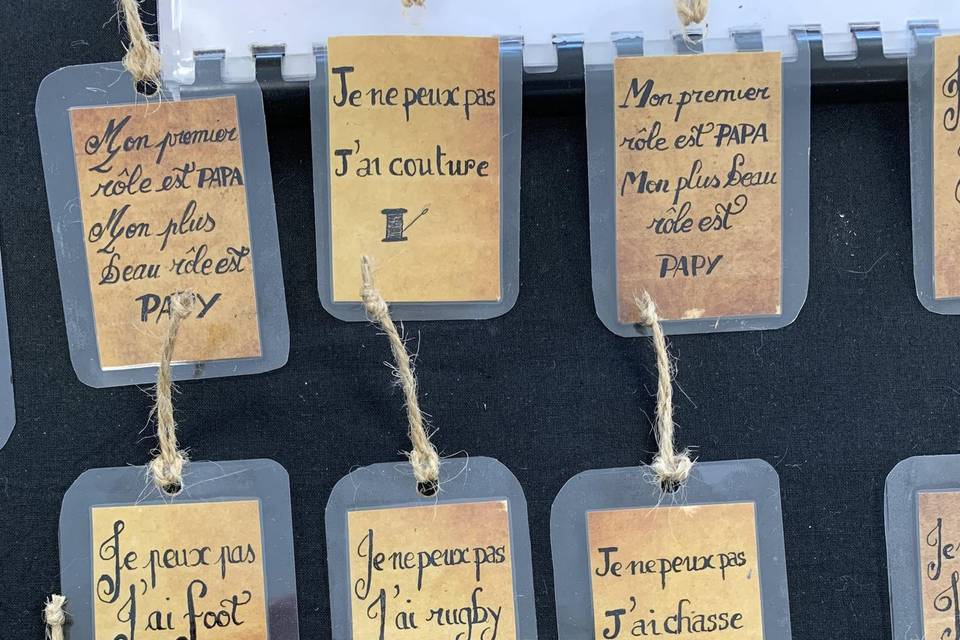 Mon premier
rôle est PAPA
Mon plus
beau rôle est
PAPY
Je ne peux pas
J'ai couture
Mon premier
rôle est PAPA
Mon plus beau
rôle est
PAPY
Je peux pas
J'ai foot
Je ne peux pas
J'ai rugby
Je ne peux pas
J'ai chasse